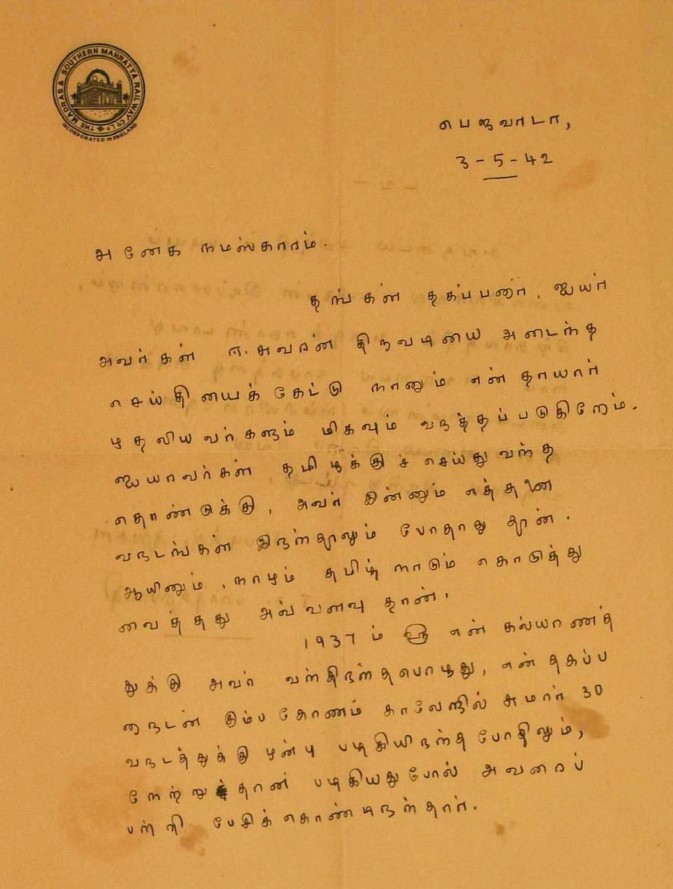 THE MADRAS & SOUTHERN MAHRATTA RAILWAY CO. LD.
INCORPORATED IN ENGLAND
பெஜவாடா,
3-5-42
அனேக நமஸ்காரம்.
தங்கள் தகப்பனார், ஐயர்
அவர்கள் ஈசுவரன் திருவடியை அடைந்த
செய்தியைக் கேட்டு நானும் என் தாயார்
முதலியவர்களும் மிகவும் வருத்தப்படுகிறோம்.
ஐயரவர்கள் தமிழுக்குச் செய்து வந்த
தொண்டுக்கு, அவர் இன்னும் எத்தனை
வருடங்கள் இருந்தாலும் போதாது தான்.
ஆயினும், நாமும் தமிழ் நாடும் கொடுத்து
வைத்தது அவ்வளவு தான்.
1937ம் ௵ என் கல்யாணத்
துக்கு அவர் வந்திருந்தபொழுது, என் தகப்ப
னாருடன் கும்பகோணம் காலேஜில் சுமார் 30
வருடத்துக்கு முன்பு பழகியிருந்த போதிலும்,
நேற்று தான் பழகியதுபோல் அவரைப்
பற்றி பேசிக் கொண்டிருந்தார்.